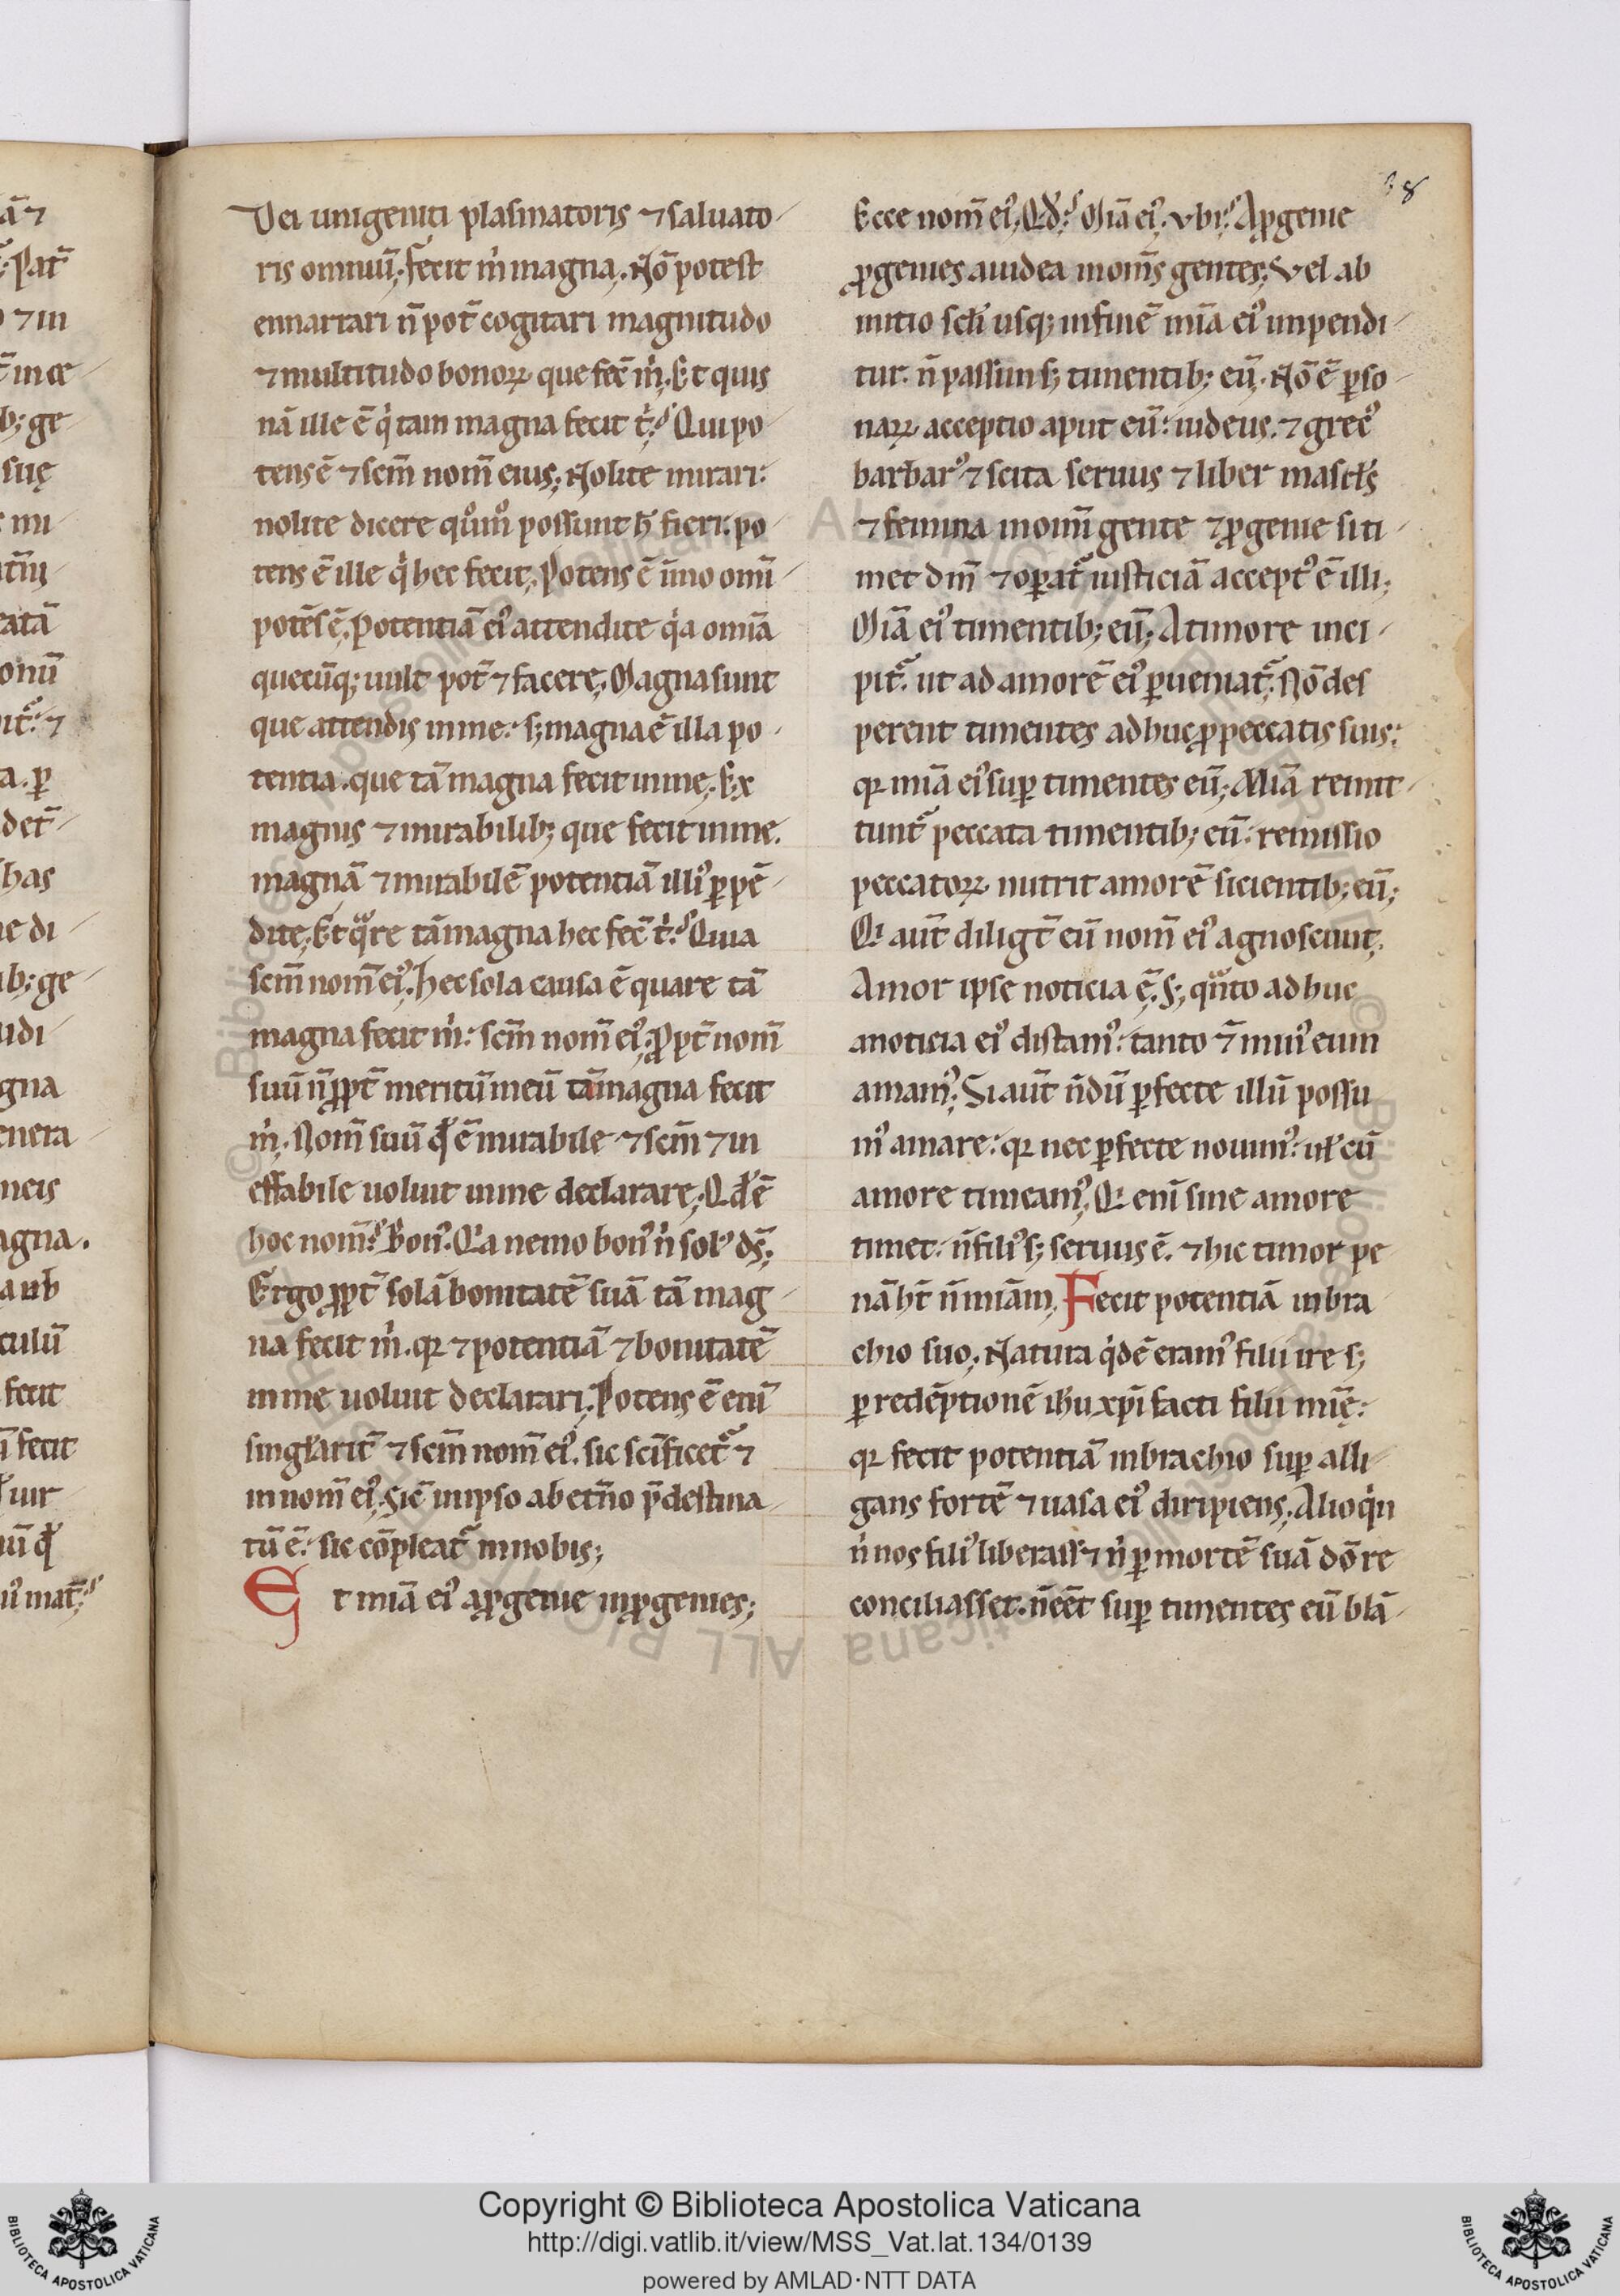 38
Dei unigeniti plasmatoris ⁊ saluato
ris omniū; fecit m̍ magna. Nō potest
ennarrari n̄ pot̄ cogitari magnitudo
⁊ multitudo bonoꝝ que fec̄ m̍. Et quis
nā ille ē q̍ tam magna fecit t̍? Qui po
tens ē ⁊ scm̄ nom̄ eius; Nolite mirari:
nolite dicere quͦmͦ possunt h̄ fieri. po
tens ē ille q̍ hec fecit; Potens ē īmo omī
potēs ē; Potentiā eiꝰ attendite q̍a omīa
quecūqꝫ uult pot̄ ⁊ facere; Magna sunt
que attendis in me: sꝫ magna ē illa po
tentia. que tā magna fecit in me;
magnis ⁊ mirabilibꝫ que fecit in me.
magnā ⁊ mirabilē potentiā illiꝰ ꝑpē
dite; Et qᵃre tā magna hec fec̄ t̍? Quia
scm̄ nom̄ eiꝰ; hec sola causa ē quare tā
magna fecit m̍: scm̄ nom̄ eiꝰ; ꝓpt̄ nom̄
suū n̄ ꝓpt̄ meritū meū tā magna fecit
m̍. Nom̄ suū qd̄ ē mirabile ⁊ scm̄ ⁊ in
effabile uoluit in me declarare; Qd̄ ē
hoc nom̄? Bonꝰ. Q̍a nemo bonꝰ n̍ solꝰ ds̄;
Ergo ꝓpt̄ solā bonitatē suā tā mag
na fecit m̍. qꝛ ⁊ potentiā ⁊ bonitatē
in me uoluit declarari; Potens ē enī
singl̄arit̄ ⁊ scm̄ nom̄ eiꝰ. sic scīficet᷑ ⁊
in nom̄ eiꝰ; Sic̄ in ipso ab et̄no p̄destina
tū ē: sic cōpleat᷑ in nobis;
Et mīa eiꝰ a ꝓgenie in ꝓgenies;
Ecce nom̄ eiꝰ; Qd̄? Mīa eiꝰ. Vbi? A ꝓgenie
ꝓgenies a iudea in om̄s gentes; Vel ab
initio scl̄i usqꝫ in finē mīa eiꝰ inpendi
tur. n̄ passim sꝫ timentibꝫ eū. Nō ē ꝑso
naꝝ acceptio aput eū: iudeus. ⁊ grecꝰ
barbarꝰ ⁊ scita seruus ⁊ liber mascl̄s
⁊ femina in omī gente ⁊ ꝓgenie si ti
met dm̄ ⁊ oꝑat᷑ iusticiā acceptꝰ ē illi;
Mīa eiꝰ timentibꝫ eū; A timore inci
pit᷑. ut ad amorē eiꝰ ꝑueniat᷑; Nō des
perent timentes adhuc ꝓ peccatis suis:
qꝛ mīa eiꝰ suꝑ timentes eū; Mīa remit
tunt᷑ peccata timentibꝫ eū: remissio
peccatoꝝ nutrit amorē sicientibꝫ eū;
Q̍ aūt diligt̄ eū nom̄ eiꝰ agnoscunt;
Amor ipse noticia ē; Sꝫ qᵃnto adhuc
a noticia eiꝰ distamꝰ: tanto ⁊ minꝰ eum
amamꝰ; Si aūt n̄dū ꝑfecte illū possu
mꝰ amare: qꝛ nec ꝑfecte nouimꝰ: ul̄ cū
amore timeamꝰ; Q̍ enī sine amore
timet: n̄ filiꝰ sꝫ seruus ē. ⁊ hic timor pe
nā ht̄ n̄ mīam; Fecit potentiā in bra
chio suo; Natura q̍dē eramꝰ filii ire sꝫ
ꝑ redēptionē ihu xpi facti filii mīę:
qꝛ fecit potentiā in brachio suꝑ alli
gans fortē ⁊ uasa eiꝰ diripiens; Alioq̍n
n̍ nos filiꝰ liberass̄ ⁊ n̍ ꝑ mortē suā dō re
conciliasset. n̄ eēt suꝑ timentes eū blā
ALL RIGHTS RESERVED
© Biblioteca Apostolica Vaticana
Copyright © Biblioteca Apostolica Vaticana
http://digi.vatlib.it/view/MSS_Vat.lat.134/0139
powered by AMLAD·NTT DATA
BIBLIOTECA APOSTOLICA VATICANA
BIBLIOTECA APOSTOLICA VATICANA